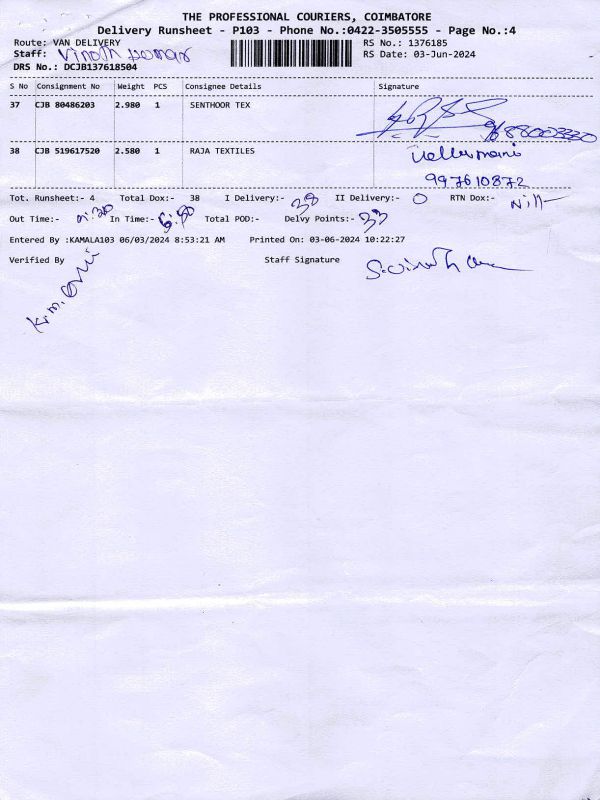 THE PROFESSIONAL COURIERS, COIMBATORE
Delivery Runsheet - P103 - Phone No.:0422-3505555 - Page No.:4
Route: VAN DELIVERY RS No.: 1376185
Staff: Vinoth kumar RS Date: 03-Jun-2024
DRS No.: DCJB137618504
S No Consignment No Weight PCS Consignee Details Signature
37 CJB 80486203 2.980 1 SENTHOOR TEX
38 CJB 519617520 2.580 1 RAJA TEXTILES
997610872
Tot. Runsheet:- 4 Total Dox:- 38 I Delivery:- 38 II Delivery:- 0 RTN Dox:- Nill
Out Time:- In Time:- Total POD:- Delvy Points:- 33
Entered By :KAMALA103 06/03/2024 8:53:21 AM Printed On: 03-06-2024 10:22:27
Verified By Staff Signature